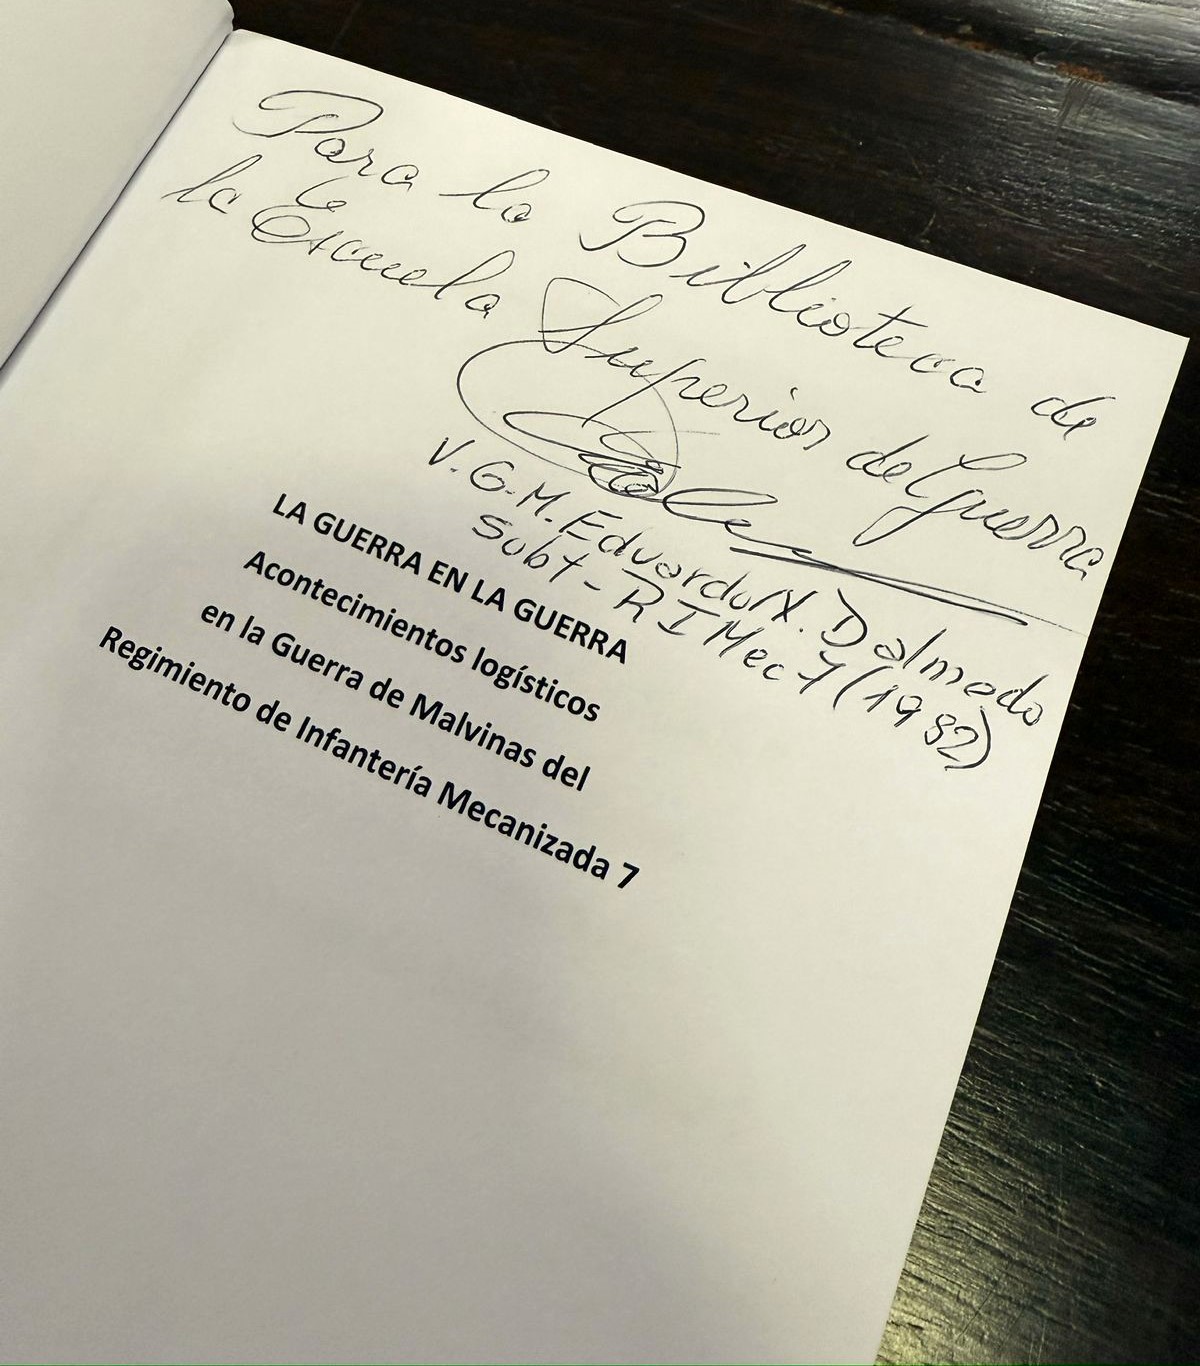 Para la Biblioteca de
la Escuela Superior de Guerra
V.G.M. Eduardo Dalmedo
Subt - RIMec 7 (1982)
LA GUERRA EN LA GUERRA
Acontecimientos logísticos
en la Guerra de Malvinas del
Regimiento de Infantería Mecanizada 7